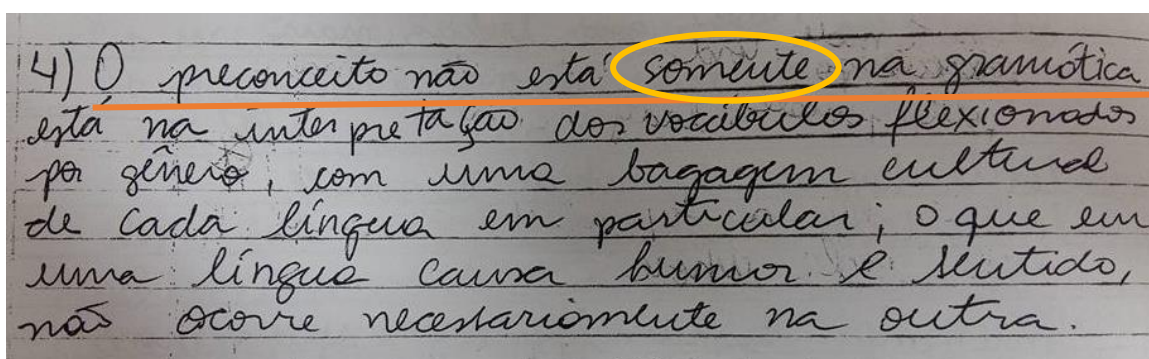 4) O preconceito não está somente na gramática
está na interpretação dos vocábulos flexionados
por gênero, com uma bagagem cultural
de cada língua em particular; o que em
uma língua causa humor e sentido,
não ocorre necessariamente na outra.